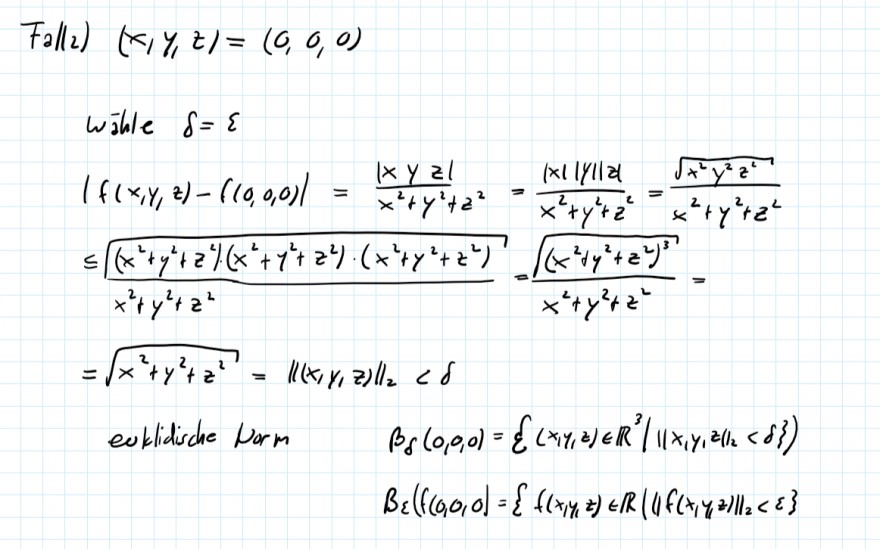 Fall 2) (x, y, z) = (0, 0, 0)
wähle δ = ε
|f(x,y,z) - f(0,0,0)| = |x y z| / (x²+y²+z²) = |x| |y| |z| / (x²+y²+z²) = √(x² y² z²) / (x²+y²+z²)
≤ √((x²+y²+z²)·(x²+y²+z²)·(x²+y²+z²)) / (x²+y²+z²) = √((x²+y²+z²)³) / (x²+y²+z²) =
= √(x²+y²+z²) = ||(x,y,z)||₂ < δ
euklidische Norm B_δ(0,0,0) = {(x,y,z) ∈ ℝ³ | ||x,y,z||₂ < δ})
B_ε(f(0,0,0) = { f(x,y,z) ∈ ℝ | ||f(x,y,z)||₂ < ε}